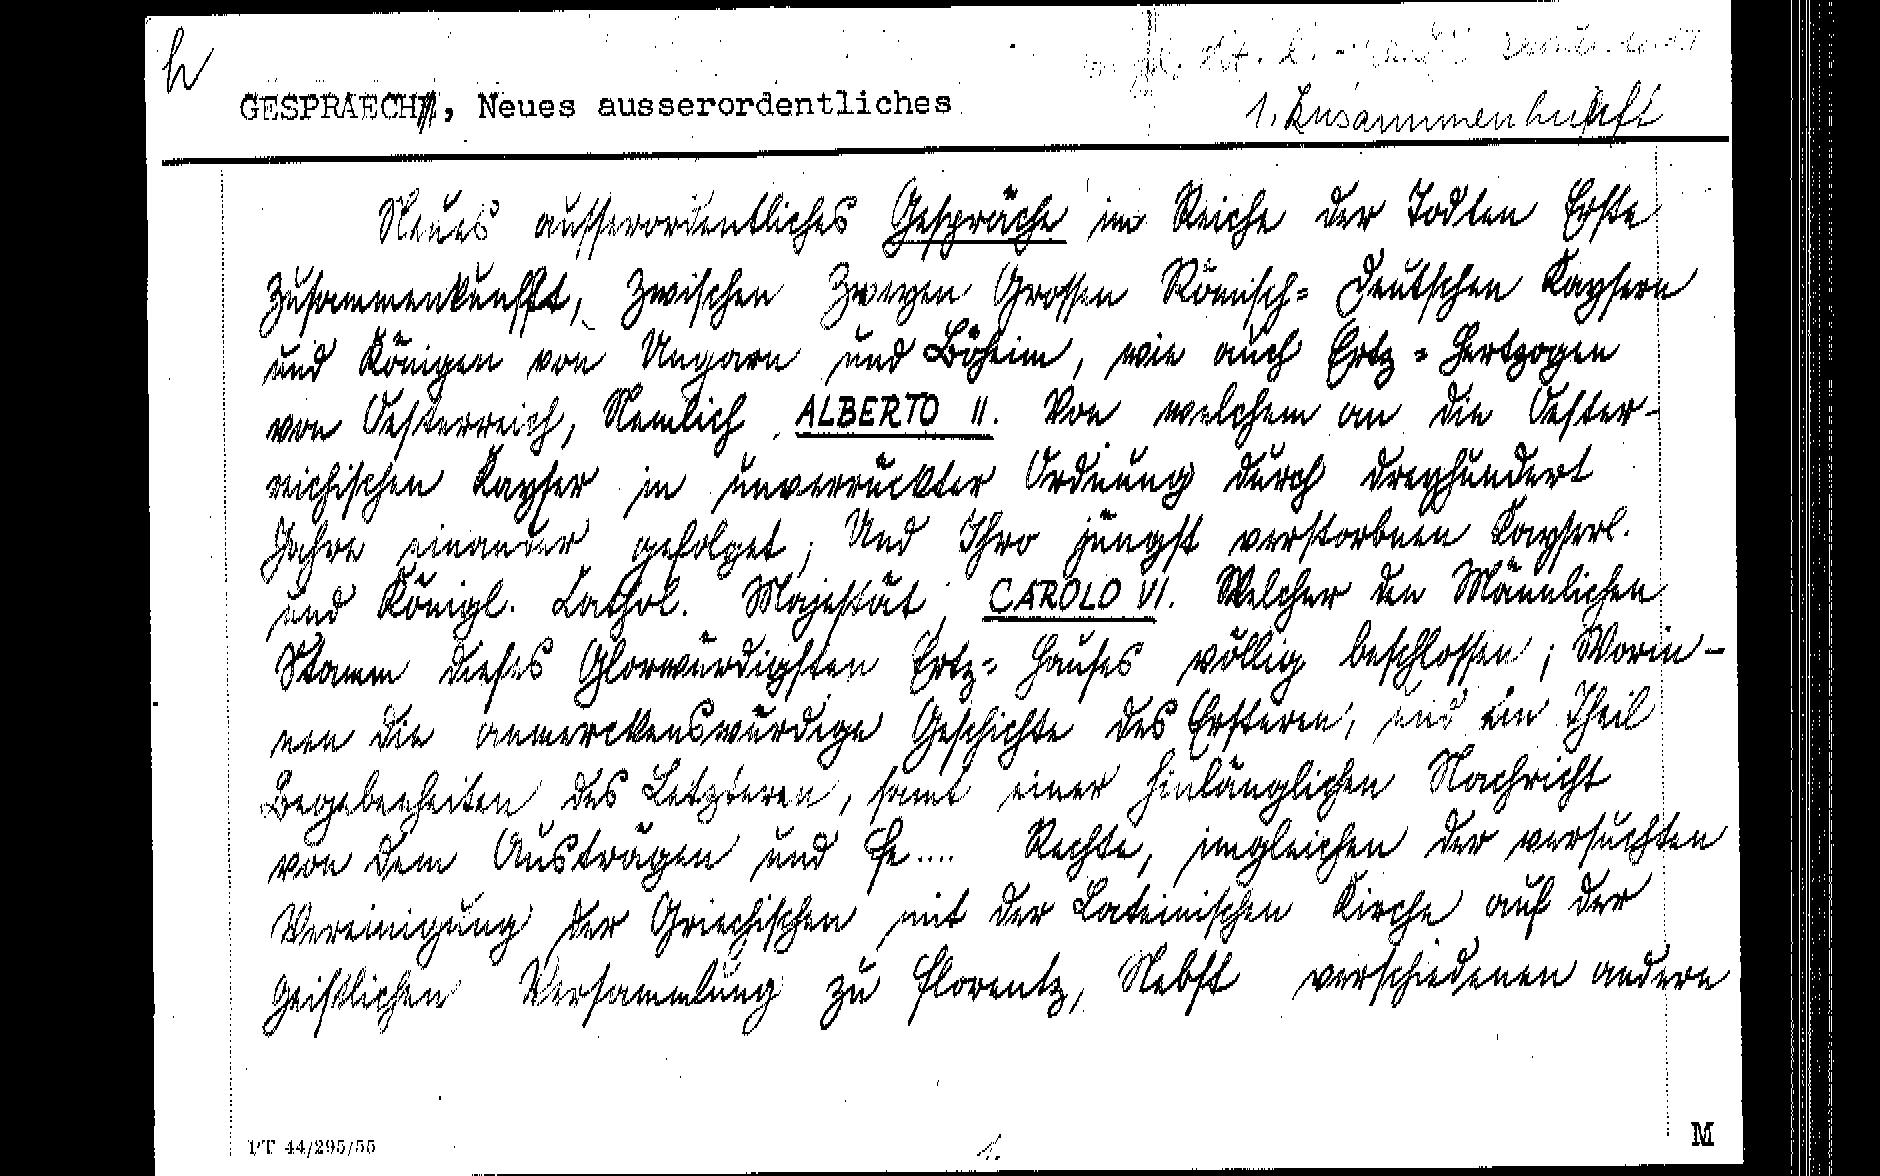 h
GESPRAECH, Neues ausserordentliches
1. Zusammenkunft
Neues ausserordentliches Gespräche im Reiche der Todten Erste
Zusammenkunfft, Zwischen Zweyen Grossen Römisch= Deutschen Kaysern
und Königen von Ungarn und Böheim, wie auch Ertz= Hertzogen
von Oesterreich, Nemlich ALBERTO II. Von welchem an die Oester-
reichischen Kayser in unverruckter Ordnung durch dreyhundert
Jahre einander gefolget; Und Ihro jüngst verstorbnen Kayserl.
und Königl. Cathol. Majestät CAROLO VI. Welcher den Männlichen
Stamm dieses Glorwürdigsten Ertz= Hauses völlig beschlossen; Worin-
nen die anmerckenswürdige Geschichte des Ersteren, und ein Theil
Begebenheiten des Letzteren, samt einer hinlänglichen Nachricht
von dem Austrägen und Fe.... Rechte, imgleichen der versuchten
Vereinigung der Griechischen mit der Lateinischen Kirche auf der
geistlichen Versammlung zu Florentz, Nebst verschiedenen andern
PT 44/295/55
1.
M